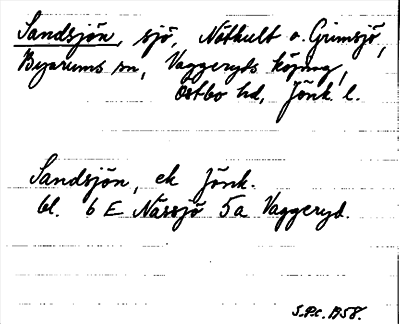 Sandsjön, sjö, Nötkult o. Grimsjö,
Byarums sn, Vaggeryds köping,
Östbo hd, Jönk. l.
Sandsjön, ek Jönk.
bl. 6 E Nässjö 5a Vaggeryd.
S.P.c. 1958.